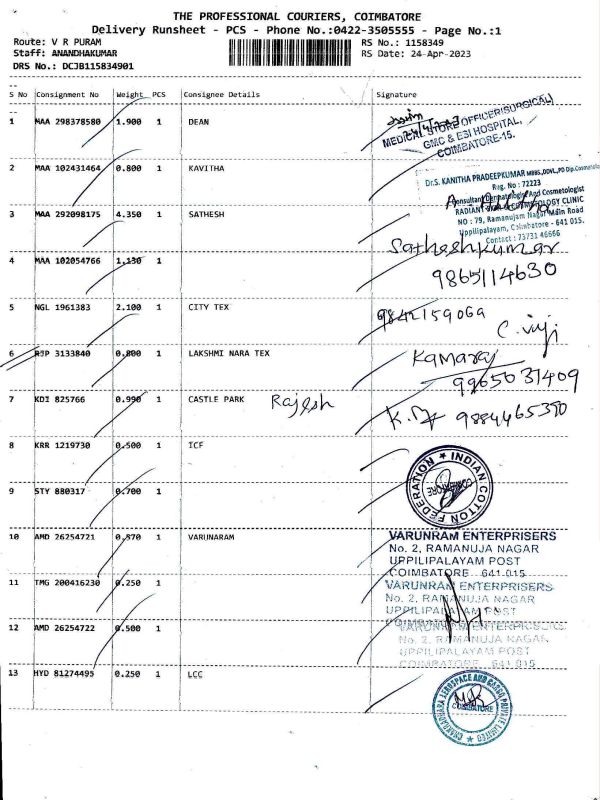 THE PROFESSIONAL COURIERS, COIMBATORE
Delivery Runsheet - PCS - Phone No.:0422-3505555 - Page No.:1
Route: V R PURAM RS No.: 1158349
Staff: ANANDHAKUMAR RS Date: 24-Apr-2023
DRS No.: DCJB115834901
S No Consignment No Weight PCS Consignee Details Signature
1 MAA 298378580 1.900 1 DEAN
MEDICAL STORE OFFICER(SURGICAL)
GMC & ESI HOSPITAL,
COIMBATORE-15.
2 MAA 102431464 0.800 1 KAVITHA
Dr.S. KANITHA PRADEEPKUMAR MBBS.,DDVL.,PD Dip.Cosmetology
Reg. No : 72223
Consultant Dermatologist And Cosmetologist
CLINIC
NO : 79, Ramanujam Nagar Main Road
Uppilipalayam, Coimbatore - 641 015.
Contact : 73731 46666
3 MAA 292098175 4.350 1 SATHESH
Satheshkumar
9865114630
4 MAA 102054766 1.130 1
5 NGL 1961383 2.100 1 CITY TEX
9842159069
C. viji
6 RJP 3133840 0.800 1 LAKSHMI NARA TEX
Kamaraj
9965031409
7 KDI 825766 0.990 1 CASTLE PARK Rajesh
9884465350
8 KRR 1219730 0.500 1 ICF
INDIAN COTTON FEDERATION
9 STY 880317 0.700 1
10 AMD 26254721 0.570 1 VARUNARAM
VARUNRAM ENTERPRISERS
No. 2, RAMANUJA NAGAR
UPPILIPALAYAM POST
COIMBATORE 641 015
11 TMG 200416230 0.250 1
VARUNRAM ENTERPRISERS
No. 2, RAMANUJA NAGAR
UPPILIPALAYAM POST
12 AMD 26254722 0.500 1
No. 2, RAMANUJA NAGAR
UPPILIPALAYAM POST
COIMBATORE 641 015
13 HYD 81274495 0.250 1 LCC
AEROSPACE AND CARGO PRIVATE LIMITED
COIMBATORE